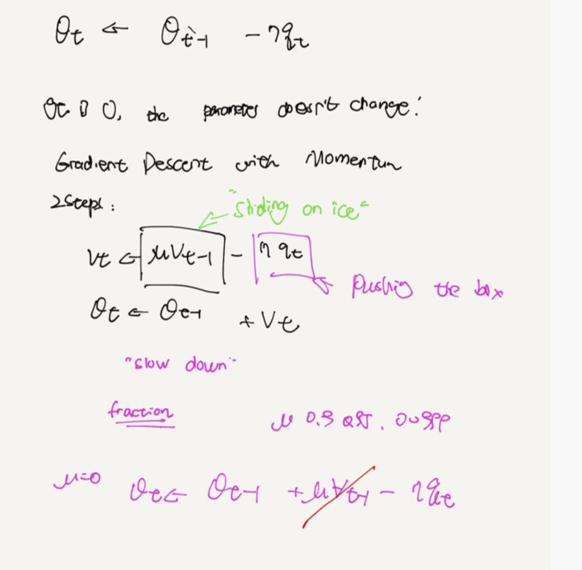 θt ← θt-1 - ηgt
gt is 0, the parameter doesn't change!
Gradient Descent with Momentum
2 Steps:
"Sliding on ice"
vt ← μVt-1 - ηgt
Pushing the box
θt ← θt-1 + Vt
"slow down"
fraction
μ 0.9
μ=0 θt ← θt-1 + μVt-1 - ηgt